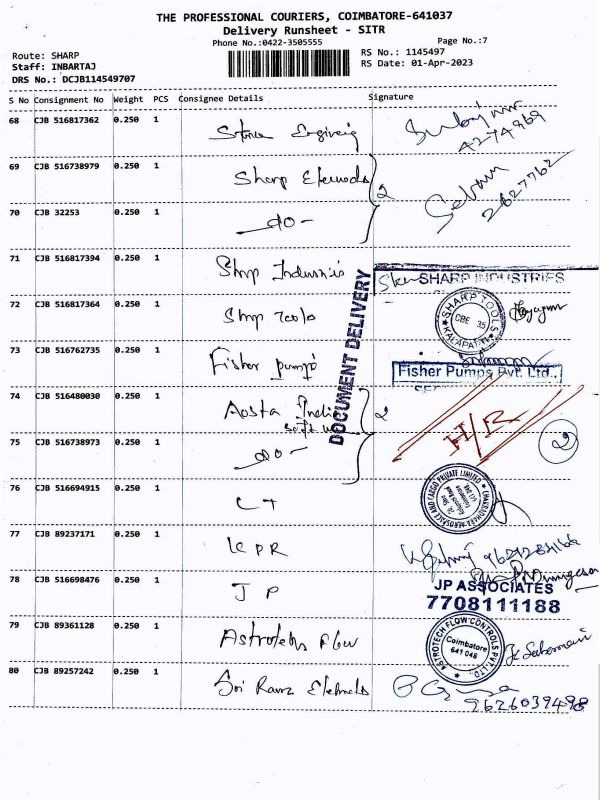 THE PROFESSIONAL COURIERS, COIMBATORE-641037
Delivery Runsheet - SITR
Phone No.:0422-3505555
Page No.:7
Route: SHARP
RS No.: 1145497
Staff: INBARTAJ
RS Date: 01-Apr-2023
DRS No.: DCJB114549707
S No Consignment No Weight PCS Consignee Details Signature
68 CJB 516817362 0.250 1
4274969
69 CJB 516738979 0.250 1 Sharp 2
2627762
70 CJB 32253 0.250 1 -do-
71 CJB 516817394 0.250 1
SHARP INDUSTRIES
72 CJB 516817364 0.250 1 Shrp Tools
SHARP TOOLS
CBE 35
KALAPATTI
73 CJB 516762735 0.250 1 Fisher Pumps
Fisher Pumps Pvt. Ltd.,
DOCUMENT DELIVERY
74 CJB 516480030 0.250 1 Aosta India 2
H/R
2
75 CJB 516738973 0.250 1 -do-
76 CJB 516694915 0.250 1 C T
AEROSPACE AND CARGO PRIVATE LIMITED
77 CJB 89237171 0.250 1 K P R
78 CJB 516698476 0.250 1 J P
JP ASSOCIATES
7708111188
79 CJB 89361128 0.250 1 Flow
ASTROTECH FLOW CONTROLS PVT. LTD.
Coimbatore
641 048
80 CJB 89257242 0.250 1 Sri
9626039498